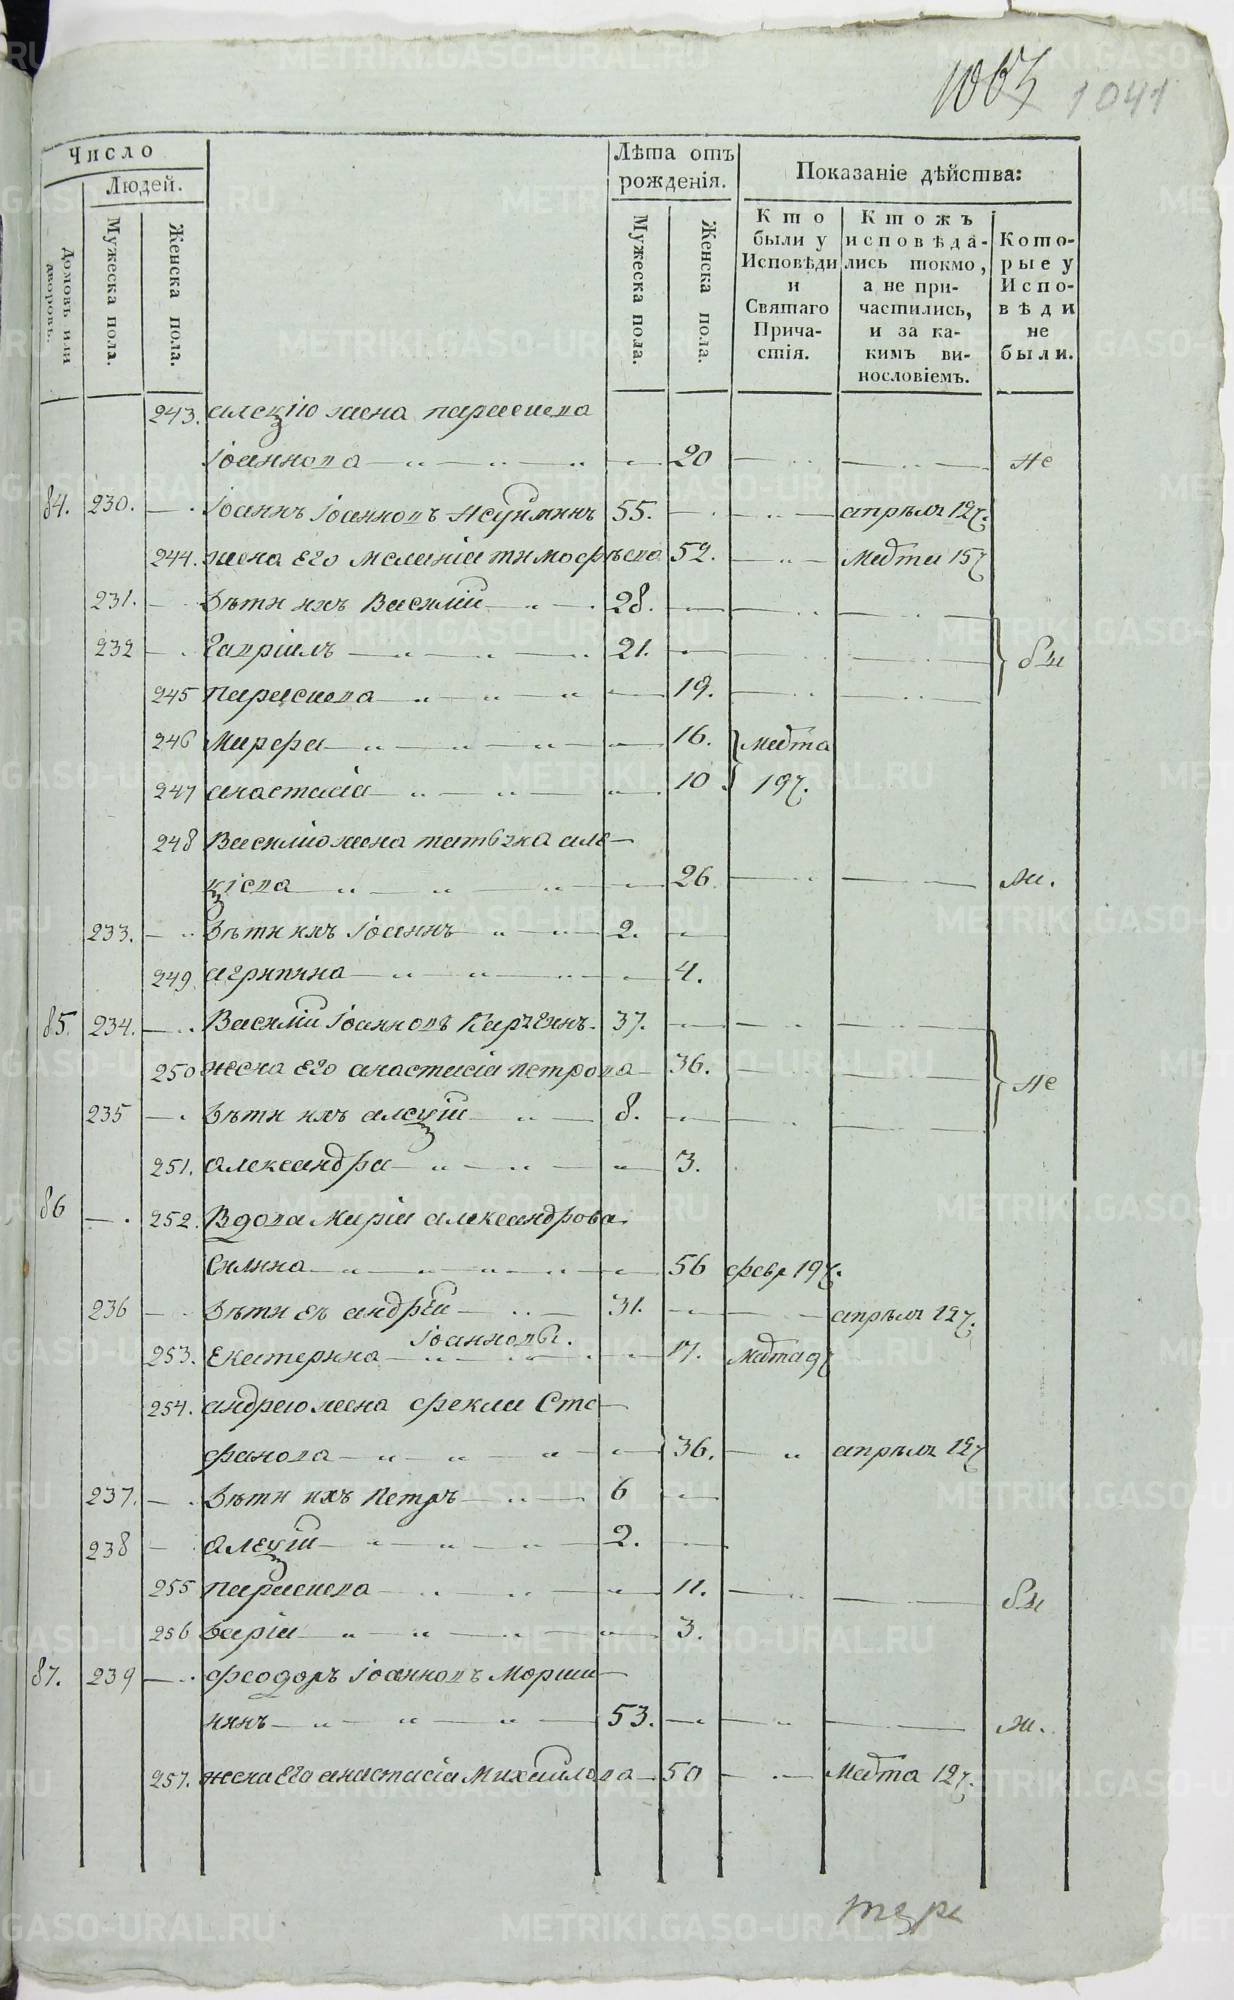 1041
Число
Людей.
Домовъ или дворовъ.
Мужеска пола.
Женска пола.
Лѣта отъ рожденія.
Мужеска пола.
Женска пола.
Показаніе дѣйства:
Кто были у Исповѣди и Святаго Причастія.
Ктожъ исповѣдались токмо, а не причастились, и за какимъ винословіемъ.
Которые у Исповѣди не были.
243. алекзію жена параскева
Іоаннова 20 не
84. 230. Іоаннъ Іоанновъ 55. апрѣля 12
244. жена Его Меланія тимофѣева 52. Марта 15
231. Дѣти ихъ Василій 28.
232 Гавріилъ 21. бы
245 параскева 19.
246 Марфа 16. марта
247 анастасія 10 19
248 Василію жена татьяна але
кзіева 26
233. Дѣти ихъ Іоаннъ 2.
249 агрипина 4.
85. 234. Василій Іоанновъ 37.
250 жена Его анастасія петрова 36. не
235 Дѣти ихъ алекзій 8.
251. александра 3.
86 252. Вдова Марія александрова
Силина 56 февр 19
236 Дѣти еѣ андрей 31. апрѣля 12
Іоанновы.
253. Екатерина 17. Марта 9
254. андрею жена фекла Сте
фанова 36. апрѣля 12
237. Дѣти ихъ Петръ 6
238 алекзій 2.
255 параскева 11. бы
256 Дарія 3.
87. 239 феодоръ Іоанновъ Морши
нинъ 53.
257. жена Его анастасія Михайлова 50 Марта 12